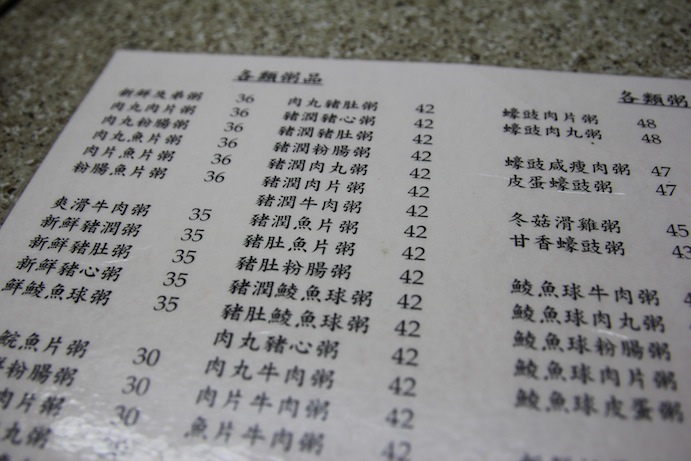 各類粥品
新鮮及弟粥 36
肉丸肉片粥 36
肉丸粉腸粥 36
肉丸魚片粥 36
肉片魚片粥 36
粉腸魚片粥 36
爽滑牛肉粥 35
新鮮豬潤粥 35
新鮮豬肚粥 35
新鮮豬心粥 35
鮮鯪魚球粥 35
鯇魚片粥 30
鮮粉腸粥 30
肉片粥 30
肉丸粥
肉丸豬肚粥 42
豬潤豬心粥 42
豬潤豬肚粥 42
豬潤粉腸粥 42
豬潤肉丸粥 42
豬潤肉片粥 42
豬潤牛肉粥 42
豬潤魚片粥 42
豬肚魚片粥 42
豬肚粉腸粥 42
豬潤鯪魚球粥 42
豬肚鯪魚球粥 42
肉丸豬心粥 42
肉丸牛肉粥 42
肉片牛肉粥 42
魚片牛肉粥 42
各類粥
蠔豉肉片粥 48
蠔豉肉丸粥 48
蠔豉咸瘦肉粥 47
皮蛋蠔豉粥 47
冬菇滑雞粥 45
甘香蠔豉粥 43
鯪魚球牛肉粥
鯪魚球肉丸粥
鯪魚球粉腸粥
鯪魚球肉片粥
鯪魚球皮蛋粥